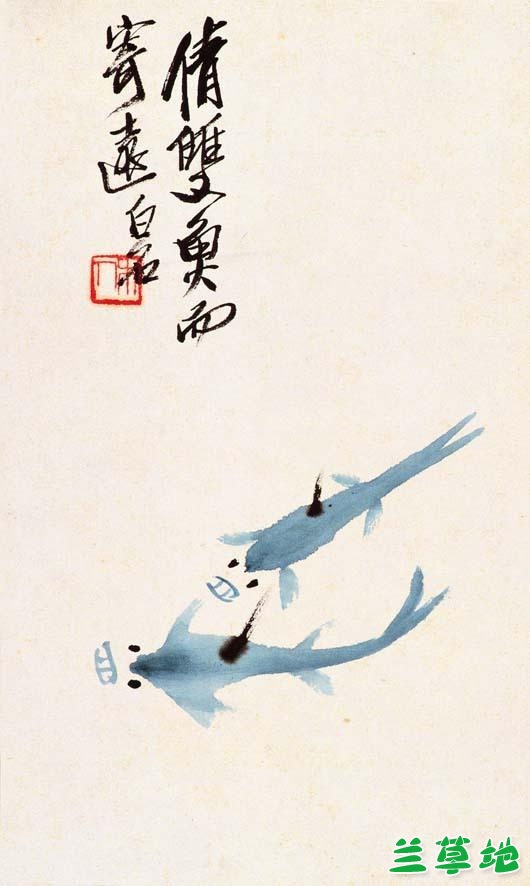 倩雙魚而
寄遠白石
兰草地